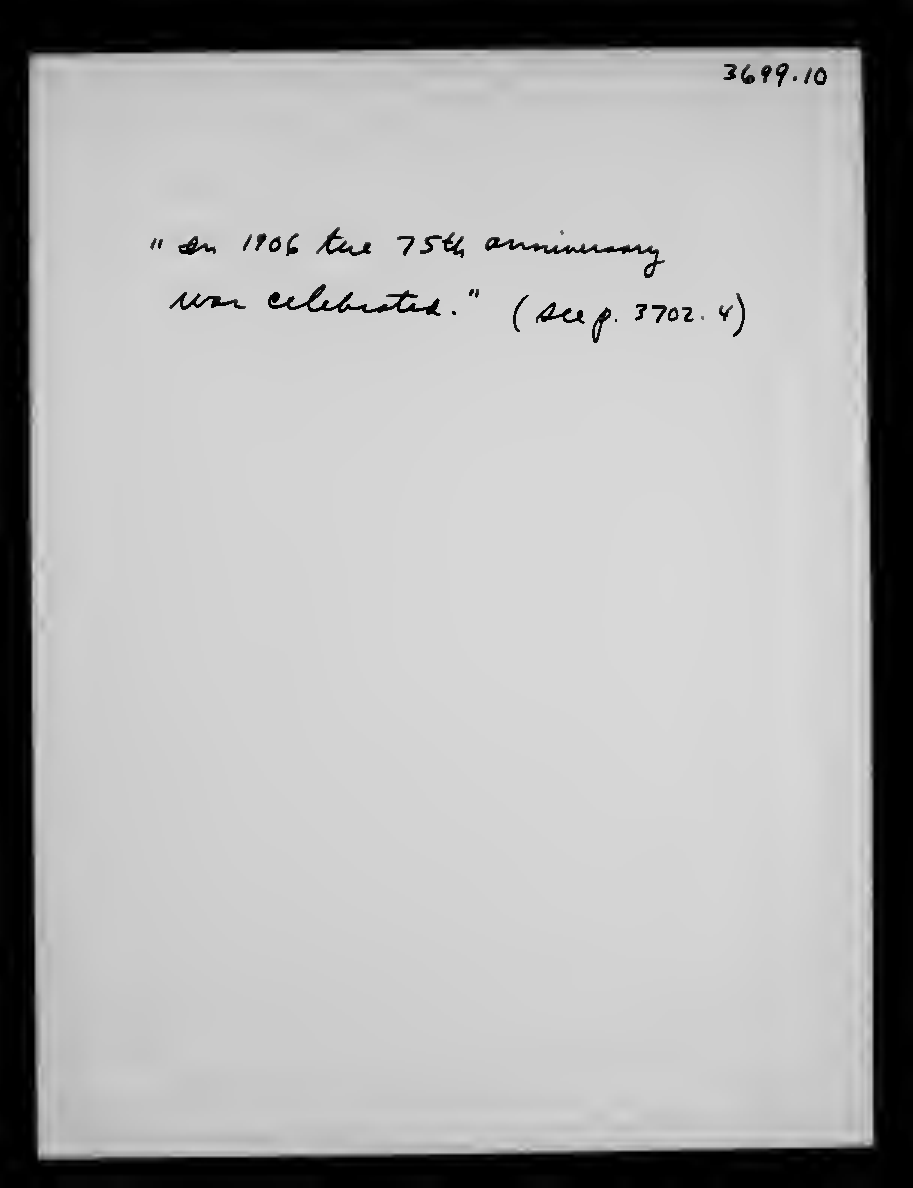 3699.10
" In 1906 the 75th anniversary
was celebrated." (see p. 3702.4)